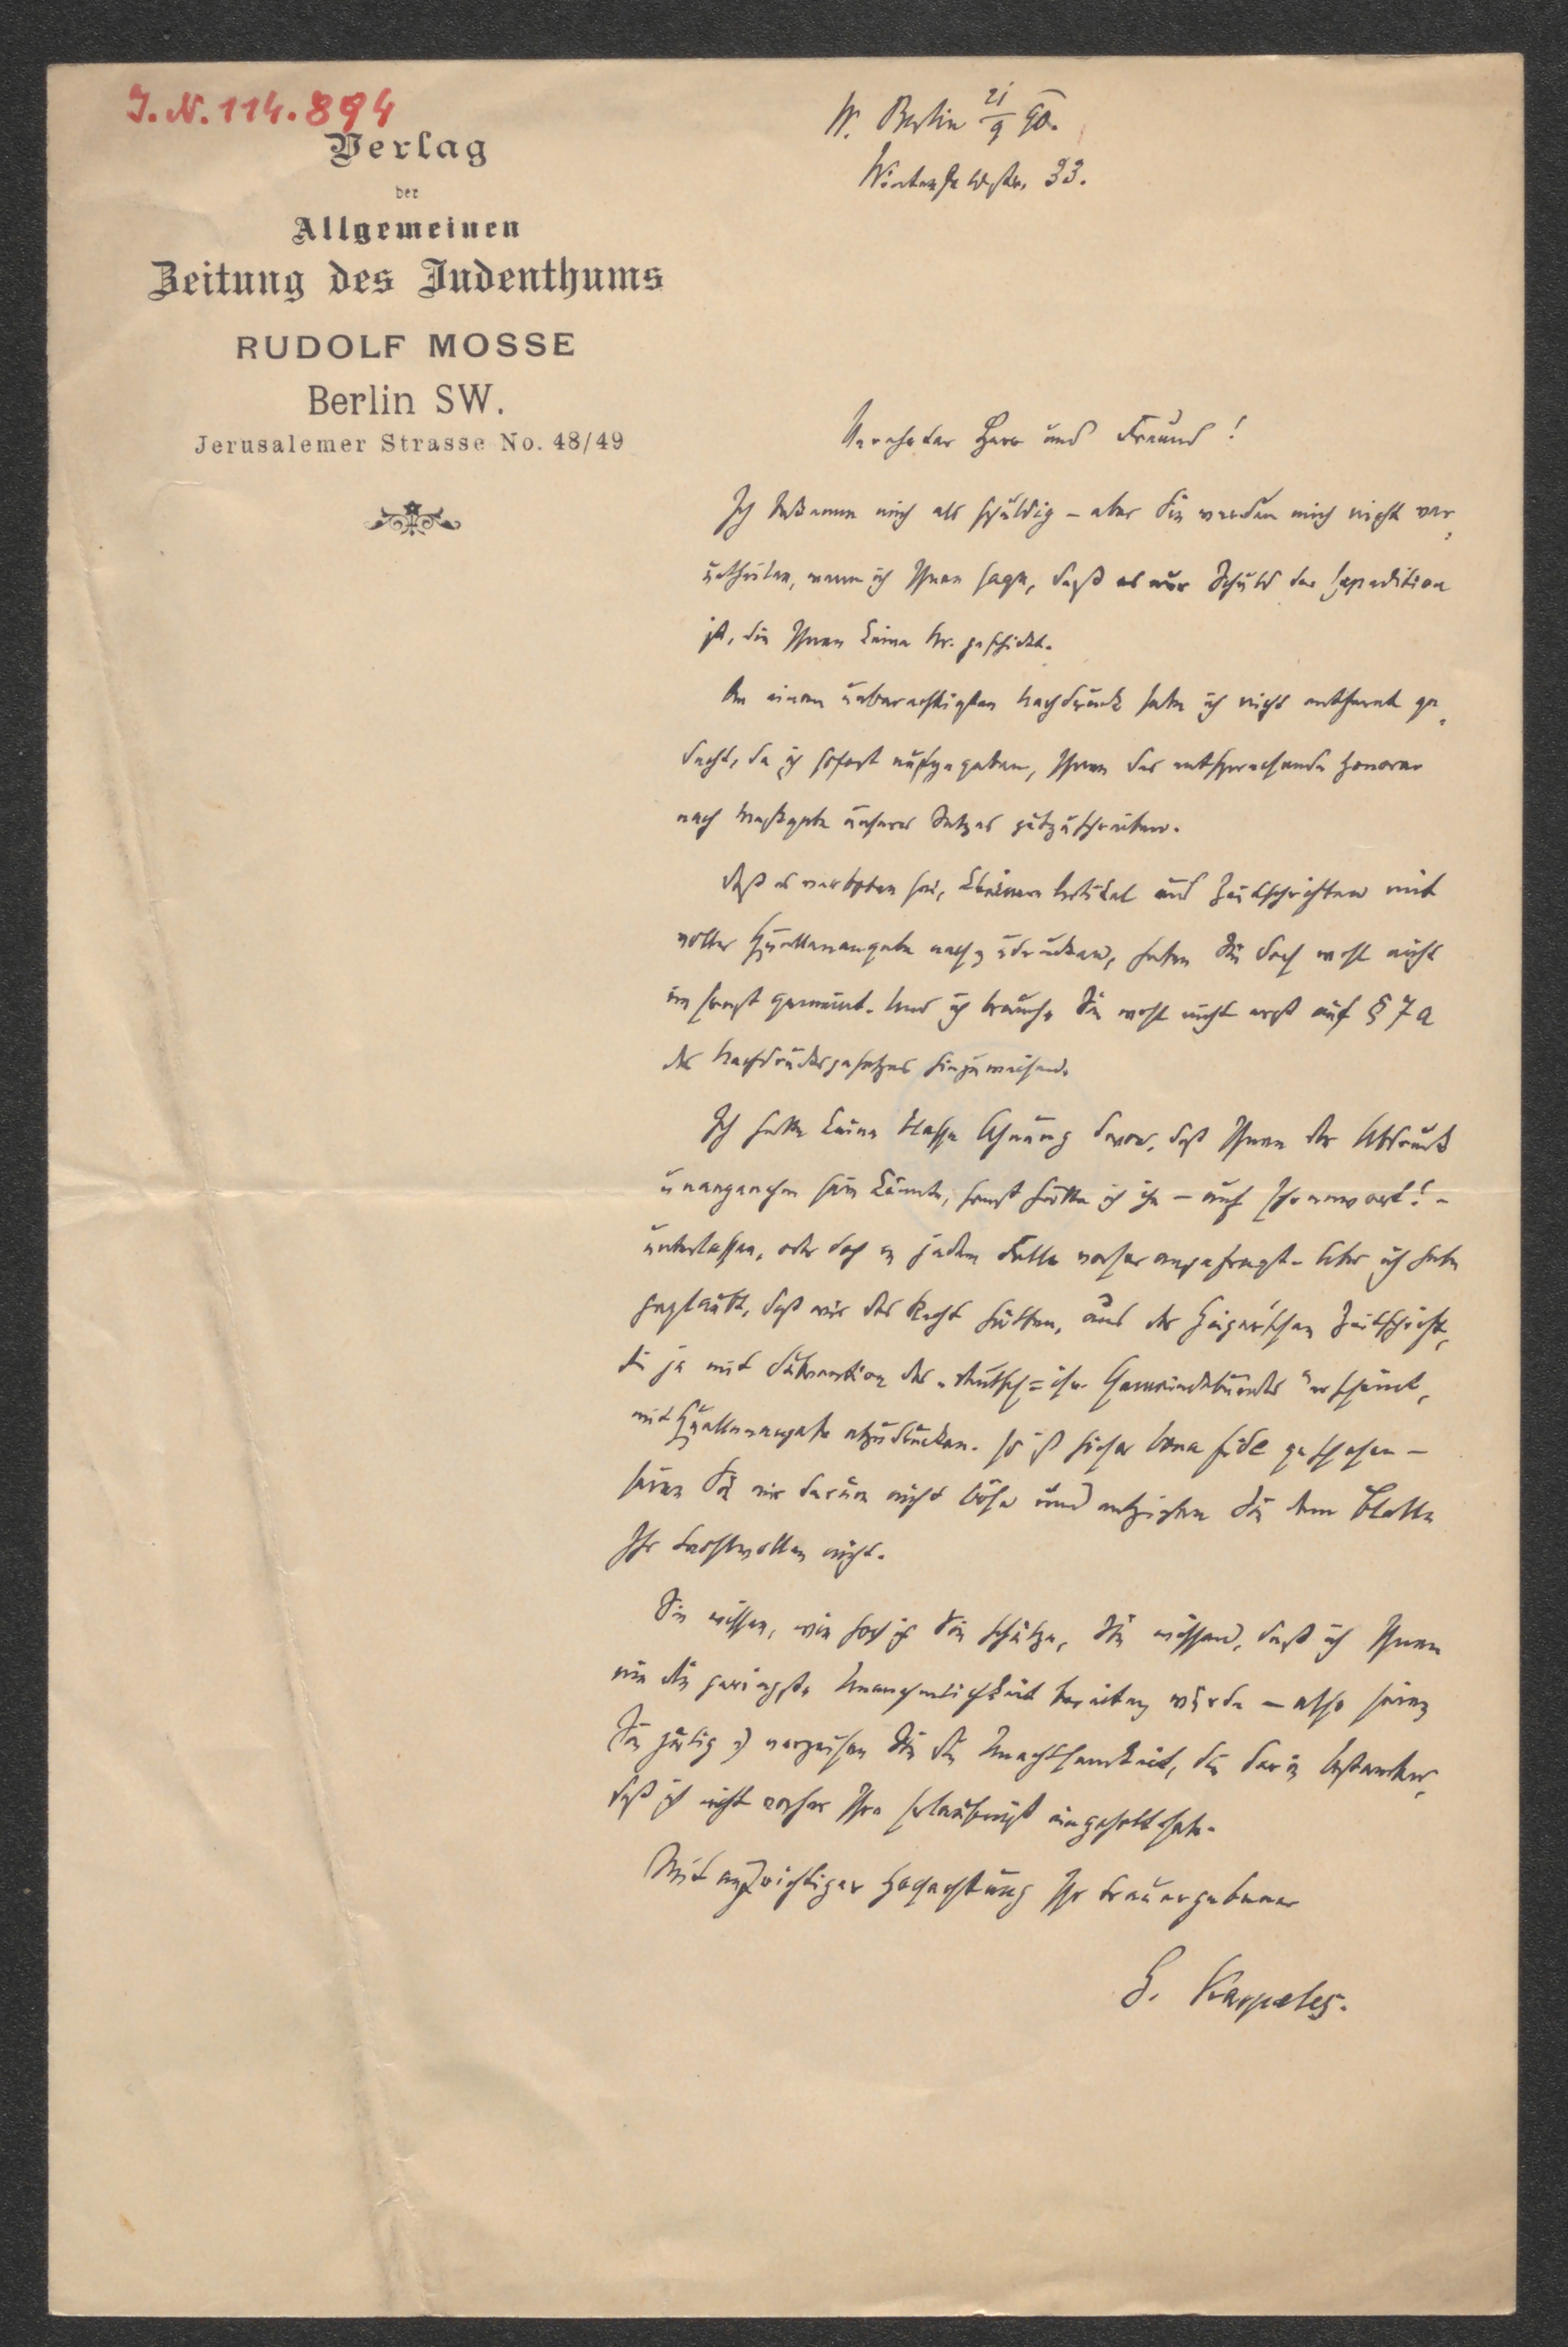 J. N. 114.894
Verlag
der
Allgemeinen
Zeitung des Judenthums
RUDOLF MOSSE
Berlin SW.
Jerusalemer Strasse No. 48/49
W. Berlin 21/9 90.
Winterfeldtstr. 33.
Verehrter Herr und Freund!
Ich bekenne mich als schuldig – aber Sie werden mich nicht ver-
urtheilen, wenn ich Ihnen sage, daß es nur Schuld der Expedition
ist, die Ihnen keine Nr. geschickt.
An einen unberechtigten Nachdruck habe ich nicht entfernt ge-
dacht, da ich sofort aufgegeben, Ihnen das entsprechende Honorar
nach Maßgabe unseres Satzes gutzuschreiben.
Daß es verboten sei, kleinere Artikel aus Zeitschriften mit
voller Quellenangabe nachzudrucken, haben Sie doch wohl nicht
im Ernst gemeint. Und ich brauche Sie wohl nicht erst auf § 7 a
des Nachdrucksgesetzes hinzuweisen.
Ich hatte keine blasse Ahnung davon, daß Ihnen der Abdruck
unangenehm sein könnte, sonst hätte ich ihn – auf Ehrenwort! –
unterlassen, oder doch in jedem Falle vorher angefragt. Aber ich habe
geglaubt, daß wir das Recht hätten, aus der Geiger'schen Zeitschrift,
die ja mit Subvention des „deutsch=isr. Gemeindebundes" erscheint,
mit Quellenangabe abzudrucken. Es ist sicher bona fide geschehen –
seien Sie mir darum nicht böse und entziehen Sie dem Blatte
Ihr Wohlwollen nicht.
Sie wissen, wie hoch ich Sie schätze, Sie wissen, daß ich Ihnen
nie die geringste Unannehmlichkeit bereiten würde – also seien
Sie gütig u verzeihen Sie die Unachtsamkeit, die darin bestanden,
daß ich nicht vorher Ihre Erlaubniß eingeholt habe.
Mit aufrichtiger Hochachtung Ihr treuergebener
G. Karpeles.